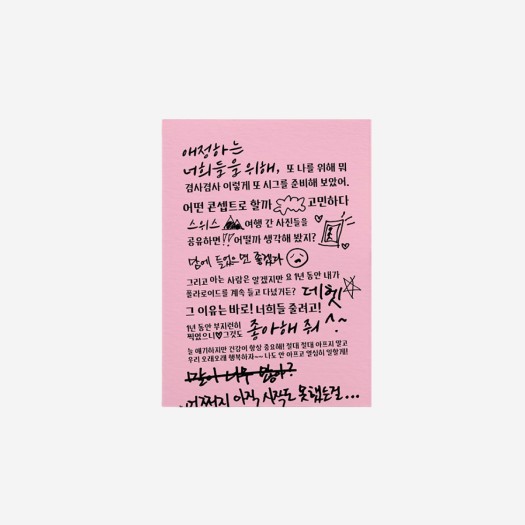 애정하는
너희들을 위해, 또 나를 위해 뭐
겸사겸사 이렇게 또 시그를 준비해 보았어.
어떤 콘셉트로 할까 고민하다
스위스 여행 간 사진들을
공유하면!? 어떨까 생각해 봤지?
맘에 들었으면 좋겠다
그리고 아는 사람은 알겠지만 요 1년 동안 내가
폴라로이드를 계속 들고 다녔거든? 데헷
그 이유는 바로! 너희들 줄려고!
1년 동안 부지런히
찍었으니♥그것도 좋아해 줘 ^~
늘 얘기하지만 건강이 항상 중요해!! 절대 절대 아프지 말고
우리 오래오래 행복하자~~ 나도 안 아프고 열심히 일할게!
말이 너무 많아?
어쩌지 아직 시작도 못했는걸...